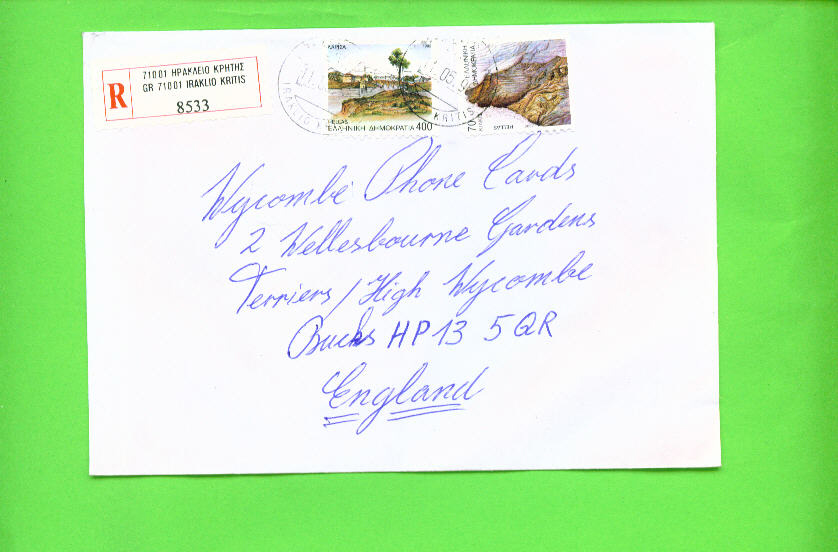 R
71001 ΗΡΑΚΛΕΙΟ ΚΡΗΤΗΣ
GR 71001 IRAKLIO KRITIS
8533
ΛΑΡΙΣΑ
HELLAS
ΕΛΛΗΝΙΚΗ ΔΗΜΟΚΡΑΤΙΑ 400
ΕΛΛΗΝΙΚΗ ΔΗΜΟΚΡΑΤΙΑ
70
HELLAS
IRAKLIO
KRITIS
Wycombe Phone Cards
2 Wellesbourne Gardens
Terriers / High Wycombe
Bucks HP13 5QR
England